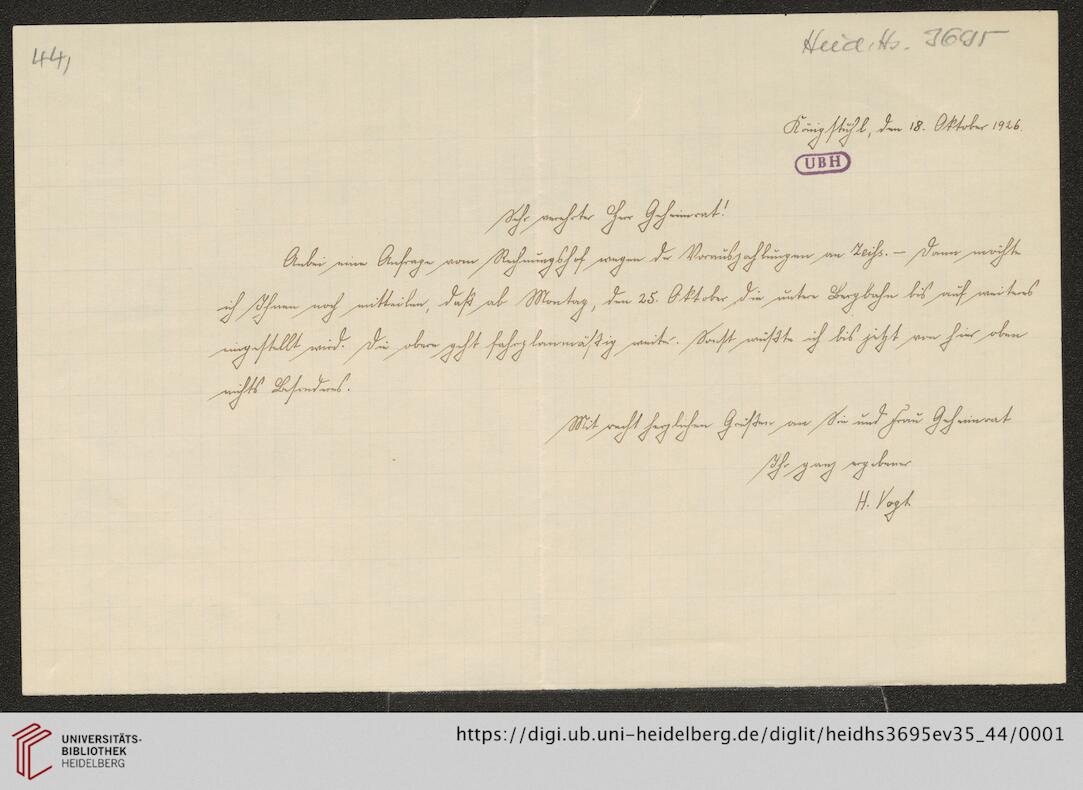 44,
Heid. Hs. 3695
Königstuhl, den 18. Oktober 1926.
UBH
Sehr verehrter Herr Geheimrat!
Anbei eine Anfrage vom Rechnungshof wegen der Vorauszahlungen an Zeiss. — Dann möchte
ich Ihnen noch mitteilen, daß ab Montag, den 25. Oktober die untere Bergbahn bis auf weiteres
eingestellt wird. Die obere geht fahrplanmäßig weiter. Sonst wüßte ich bis jetzt von hier oben
nichts Besonderes.
Mit recht herzlichen Grüßen an Sie und Frau Geheimrat
Ihr ganz ergebener
H. Vogt.
UNIVERSITÄTS-
BIBLIOTHEK
HEIDELBERG
https://digi.ub.uni-heidelberg.de/diglit/heidhs3695ev35_44/0001